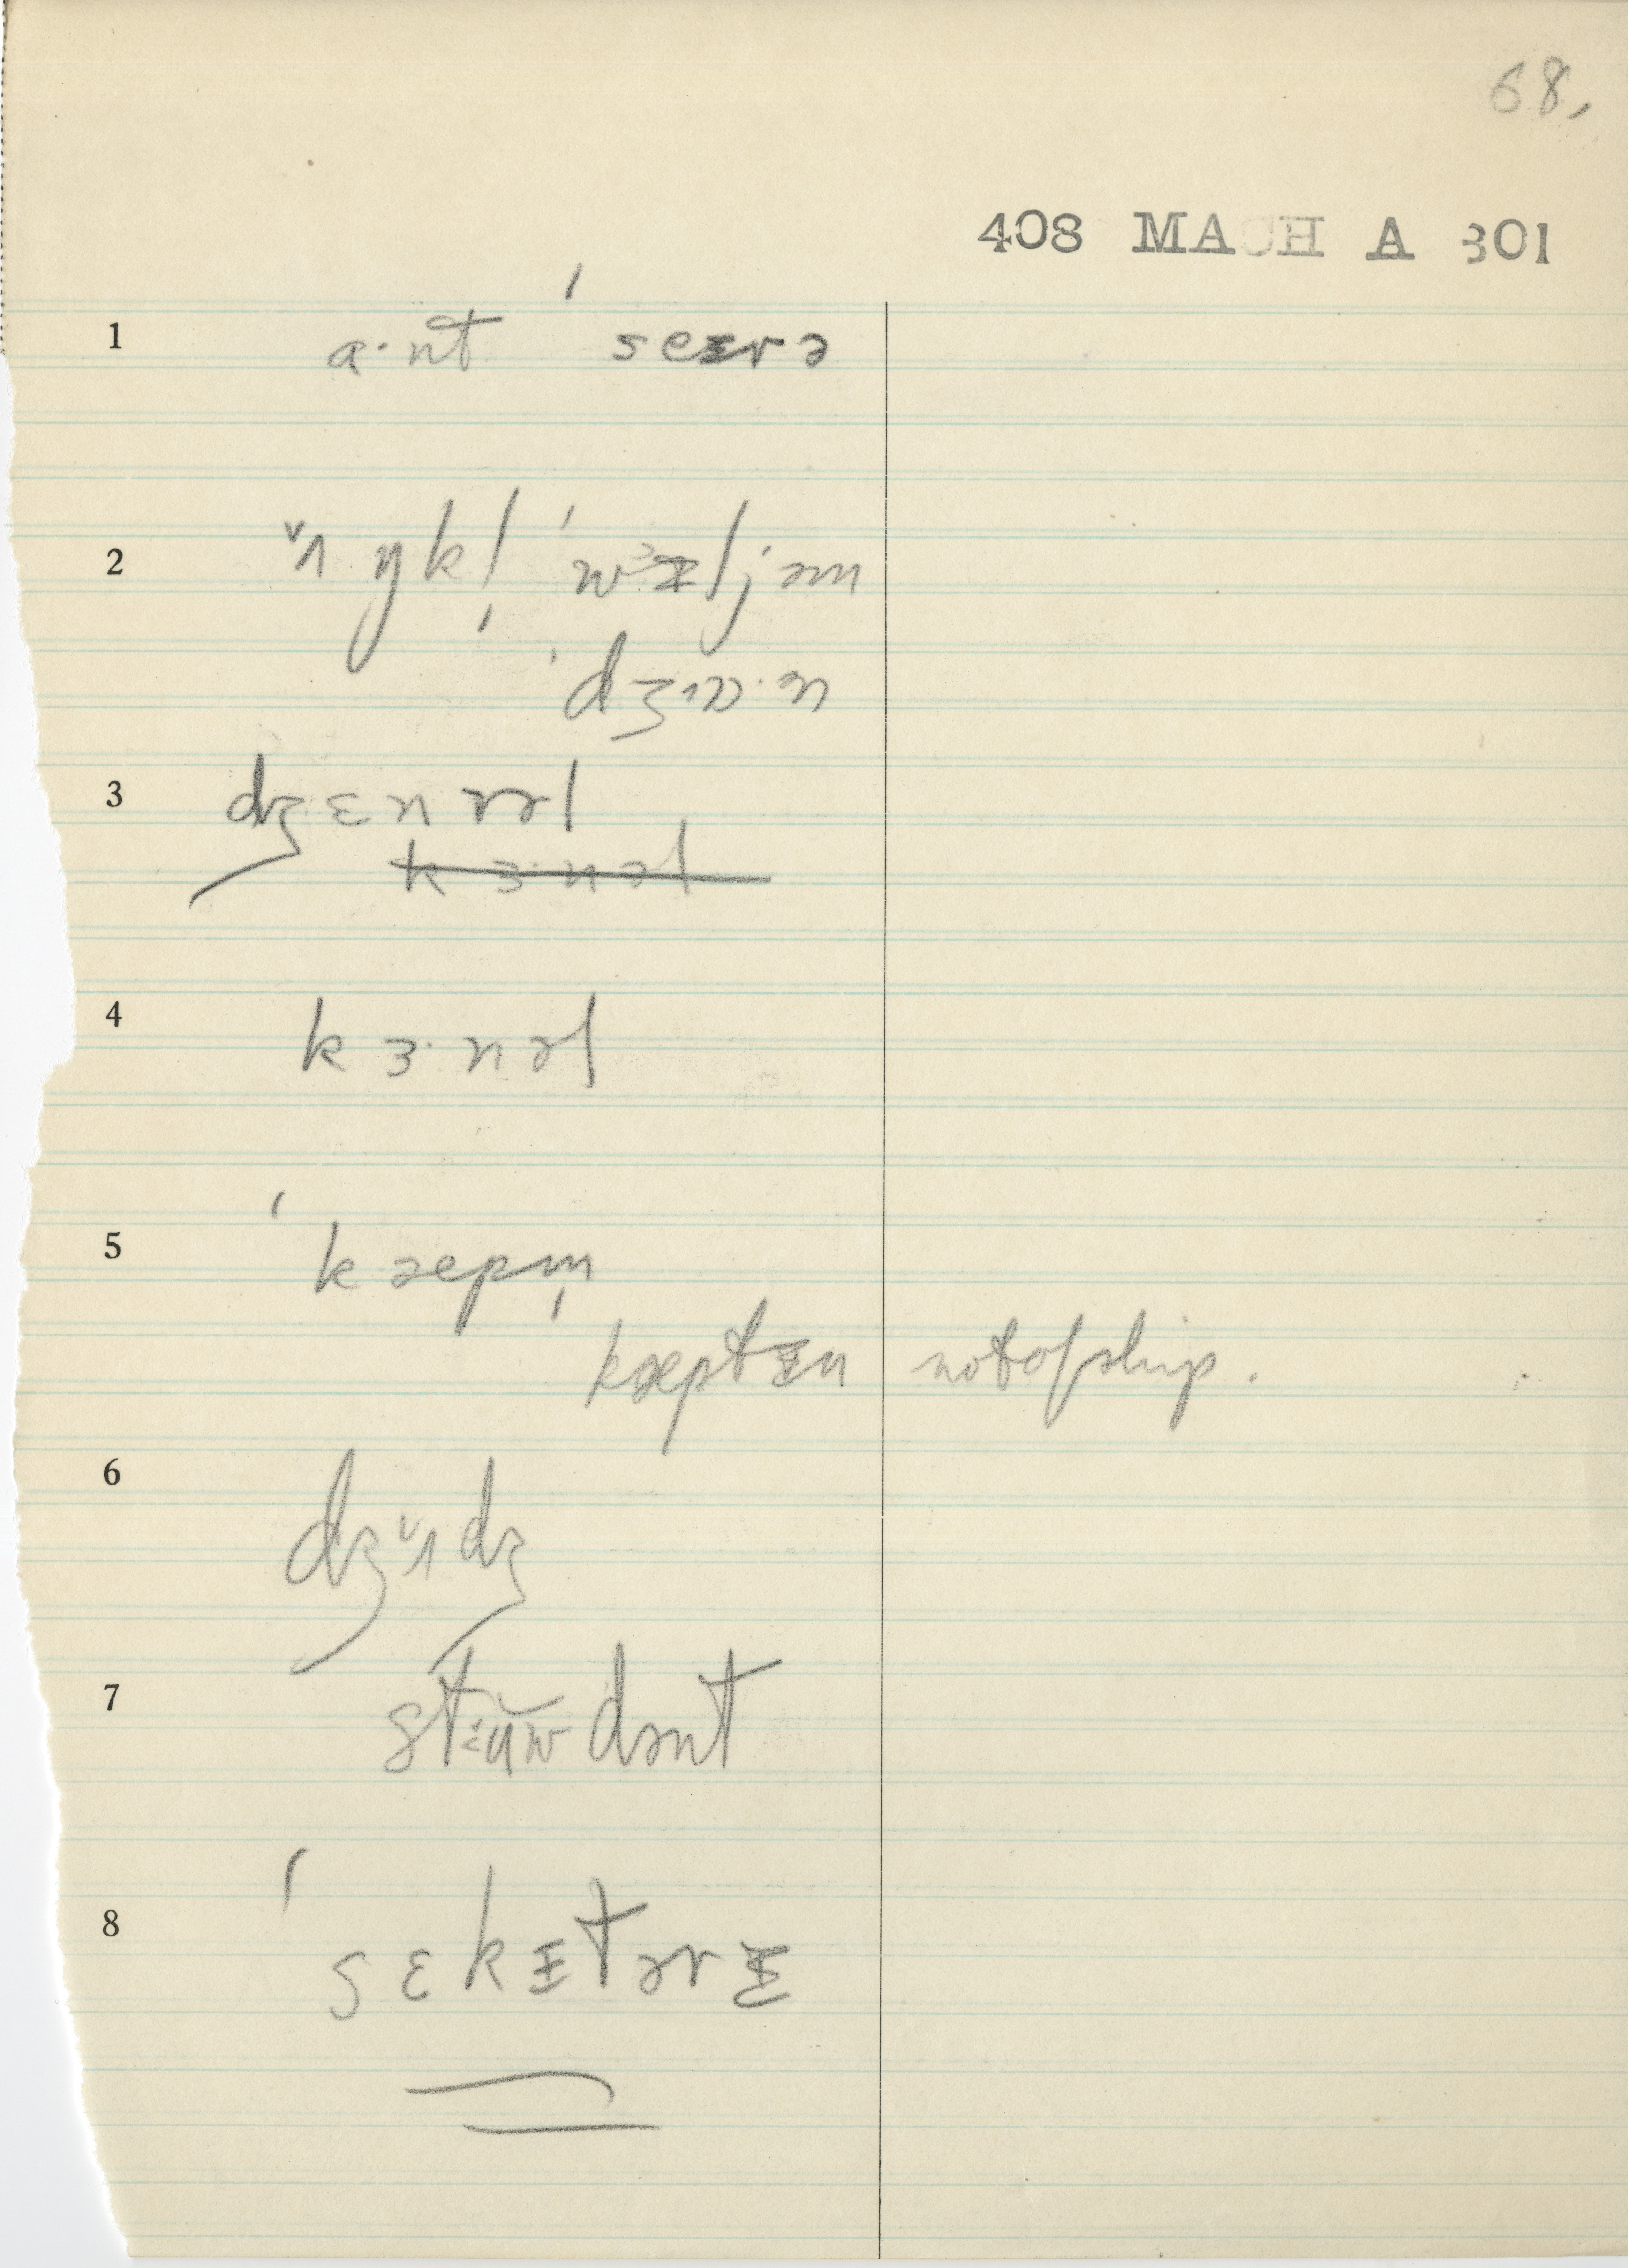 68.
408 MACH A 301
1 a·nt ˈseᵻrə
2 ʌ̌ŋkl̩ ˈwɪljəm
ˈdʒɒ·n
3 dʒɛnrəl
k3·nəl
4 k3·nəl
5 ˈkæpm̩
kæptᵻn not of ship.
6 dʒʌ̌dʒ
7 stᵻʉ̆wdənt
8 ˈsɛkᵻtərᵻ